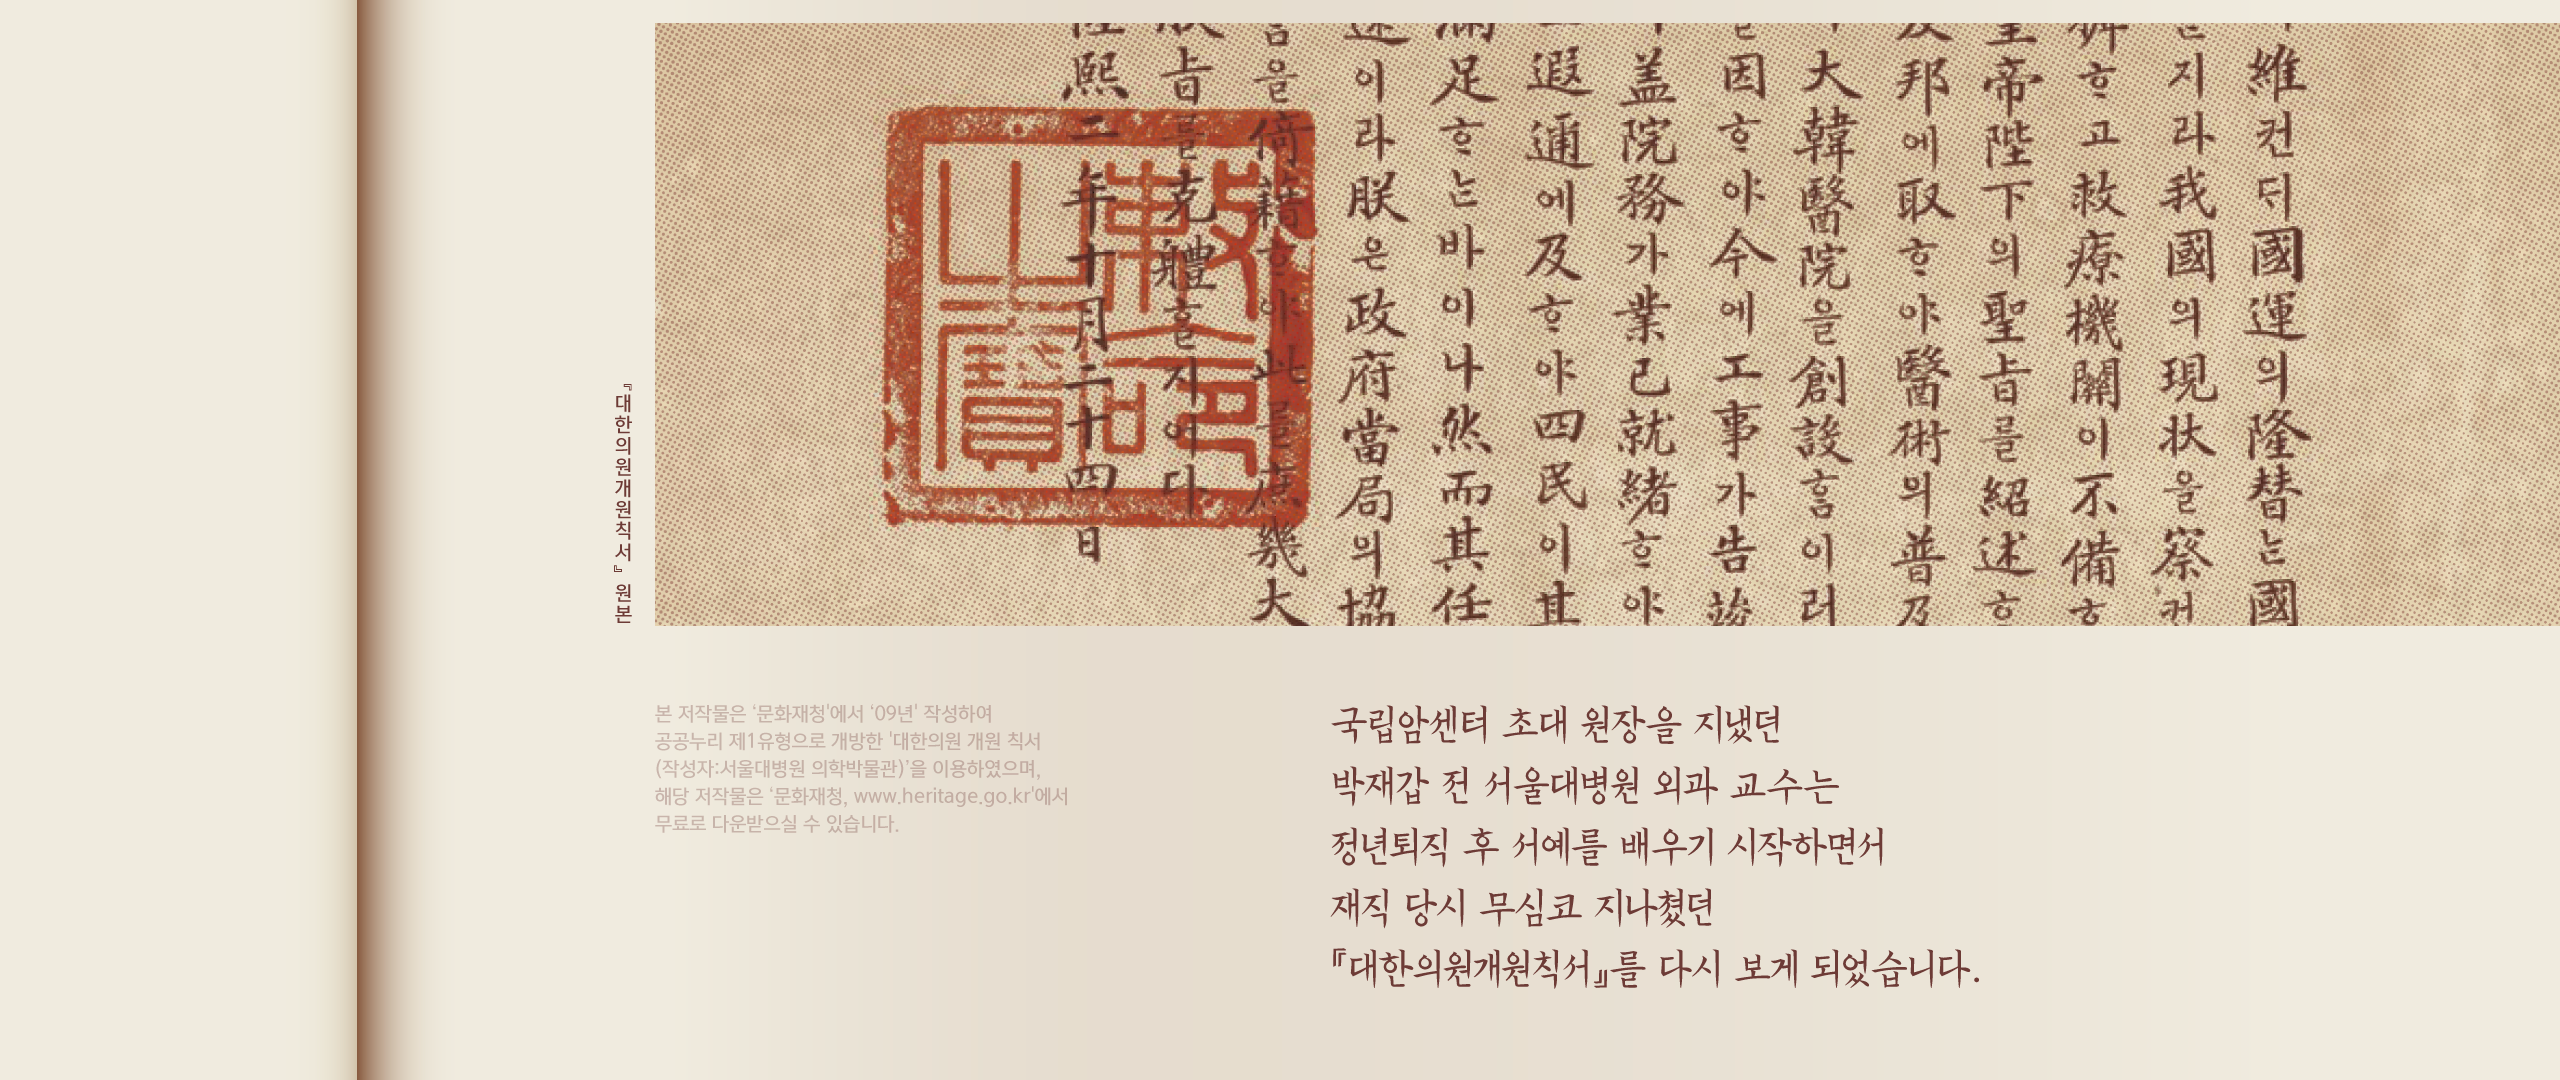 維컨ᄃᆡ國運의隆替ᄂᆞᆫ國
지라我國의現狀을察컨
ᄒᆞ고救療機關이不備ᄒᆞ
皇帝陛下의聖旨를紹述ᄒᆞ
邦에取ᄒᆞ야醫術의普及
大韓醫院을創設홈이러
因ᄒᆞ야今에工事가告竣
盖院務가業已就緖ᄒᆞ야
遐邇에及ᄒᆞ야四民이其
滿足ᄒᆞᄂᆞᆫ바이나然而其任
이라朕은政府當局의協
을倚藉ᄒᆞ야此를庶幾大
旨를克體ᄒᆞᆯ지어다
熙二年十月二十四日
勅命之寶
『대한의원개원칙서』 원본
본 저작물은 ‘문화재청'에서 ‘09년' 작성하여
공공누리 제1유형으로 개방한 '대한의원 개원 칙서
(작성자:서울대병원 의학박물관)'을 이용하였으며,
해당 저작물은 ‘문화재청, www.heritage.go.kr'에서
무료로 다운받으실 수 있습니다.
국립암센터 초대 원장을 지냈던
박재갑 전 서울대병원 외과 교수는
정년퇴직 후 서예를 배우기 시작하면서
재직 당시 무심코 지나쳤던
『대한의원개원칙서』를 다시 보게 되었습니다.